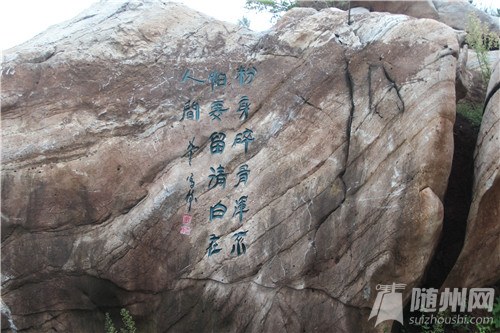 粉身碎骨浑不
怕要留清白在
人間
随州网
suizhoushi.com